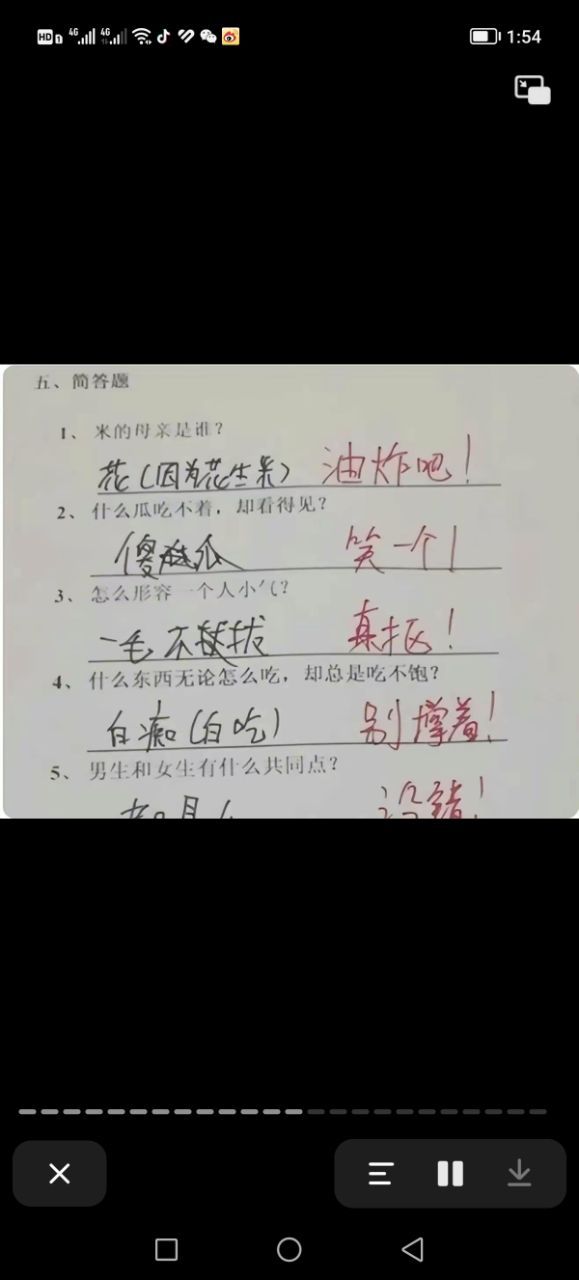 HD 1 4G 4G 1:54
五、简答题
1、米的母亲是谁?
花(因为花生米) 油炸吧!
2、什么瓜吃不着,却看得见?
傻瓜 笑一个!
3、怎么形容一个人小气?
一毛不拔 真抠!
4、什么东西无论怎么吃,却总是吃不饱?
白痴(白吃) 别撑着!
5、男生和女生有什么共同点?
都是人 没错!